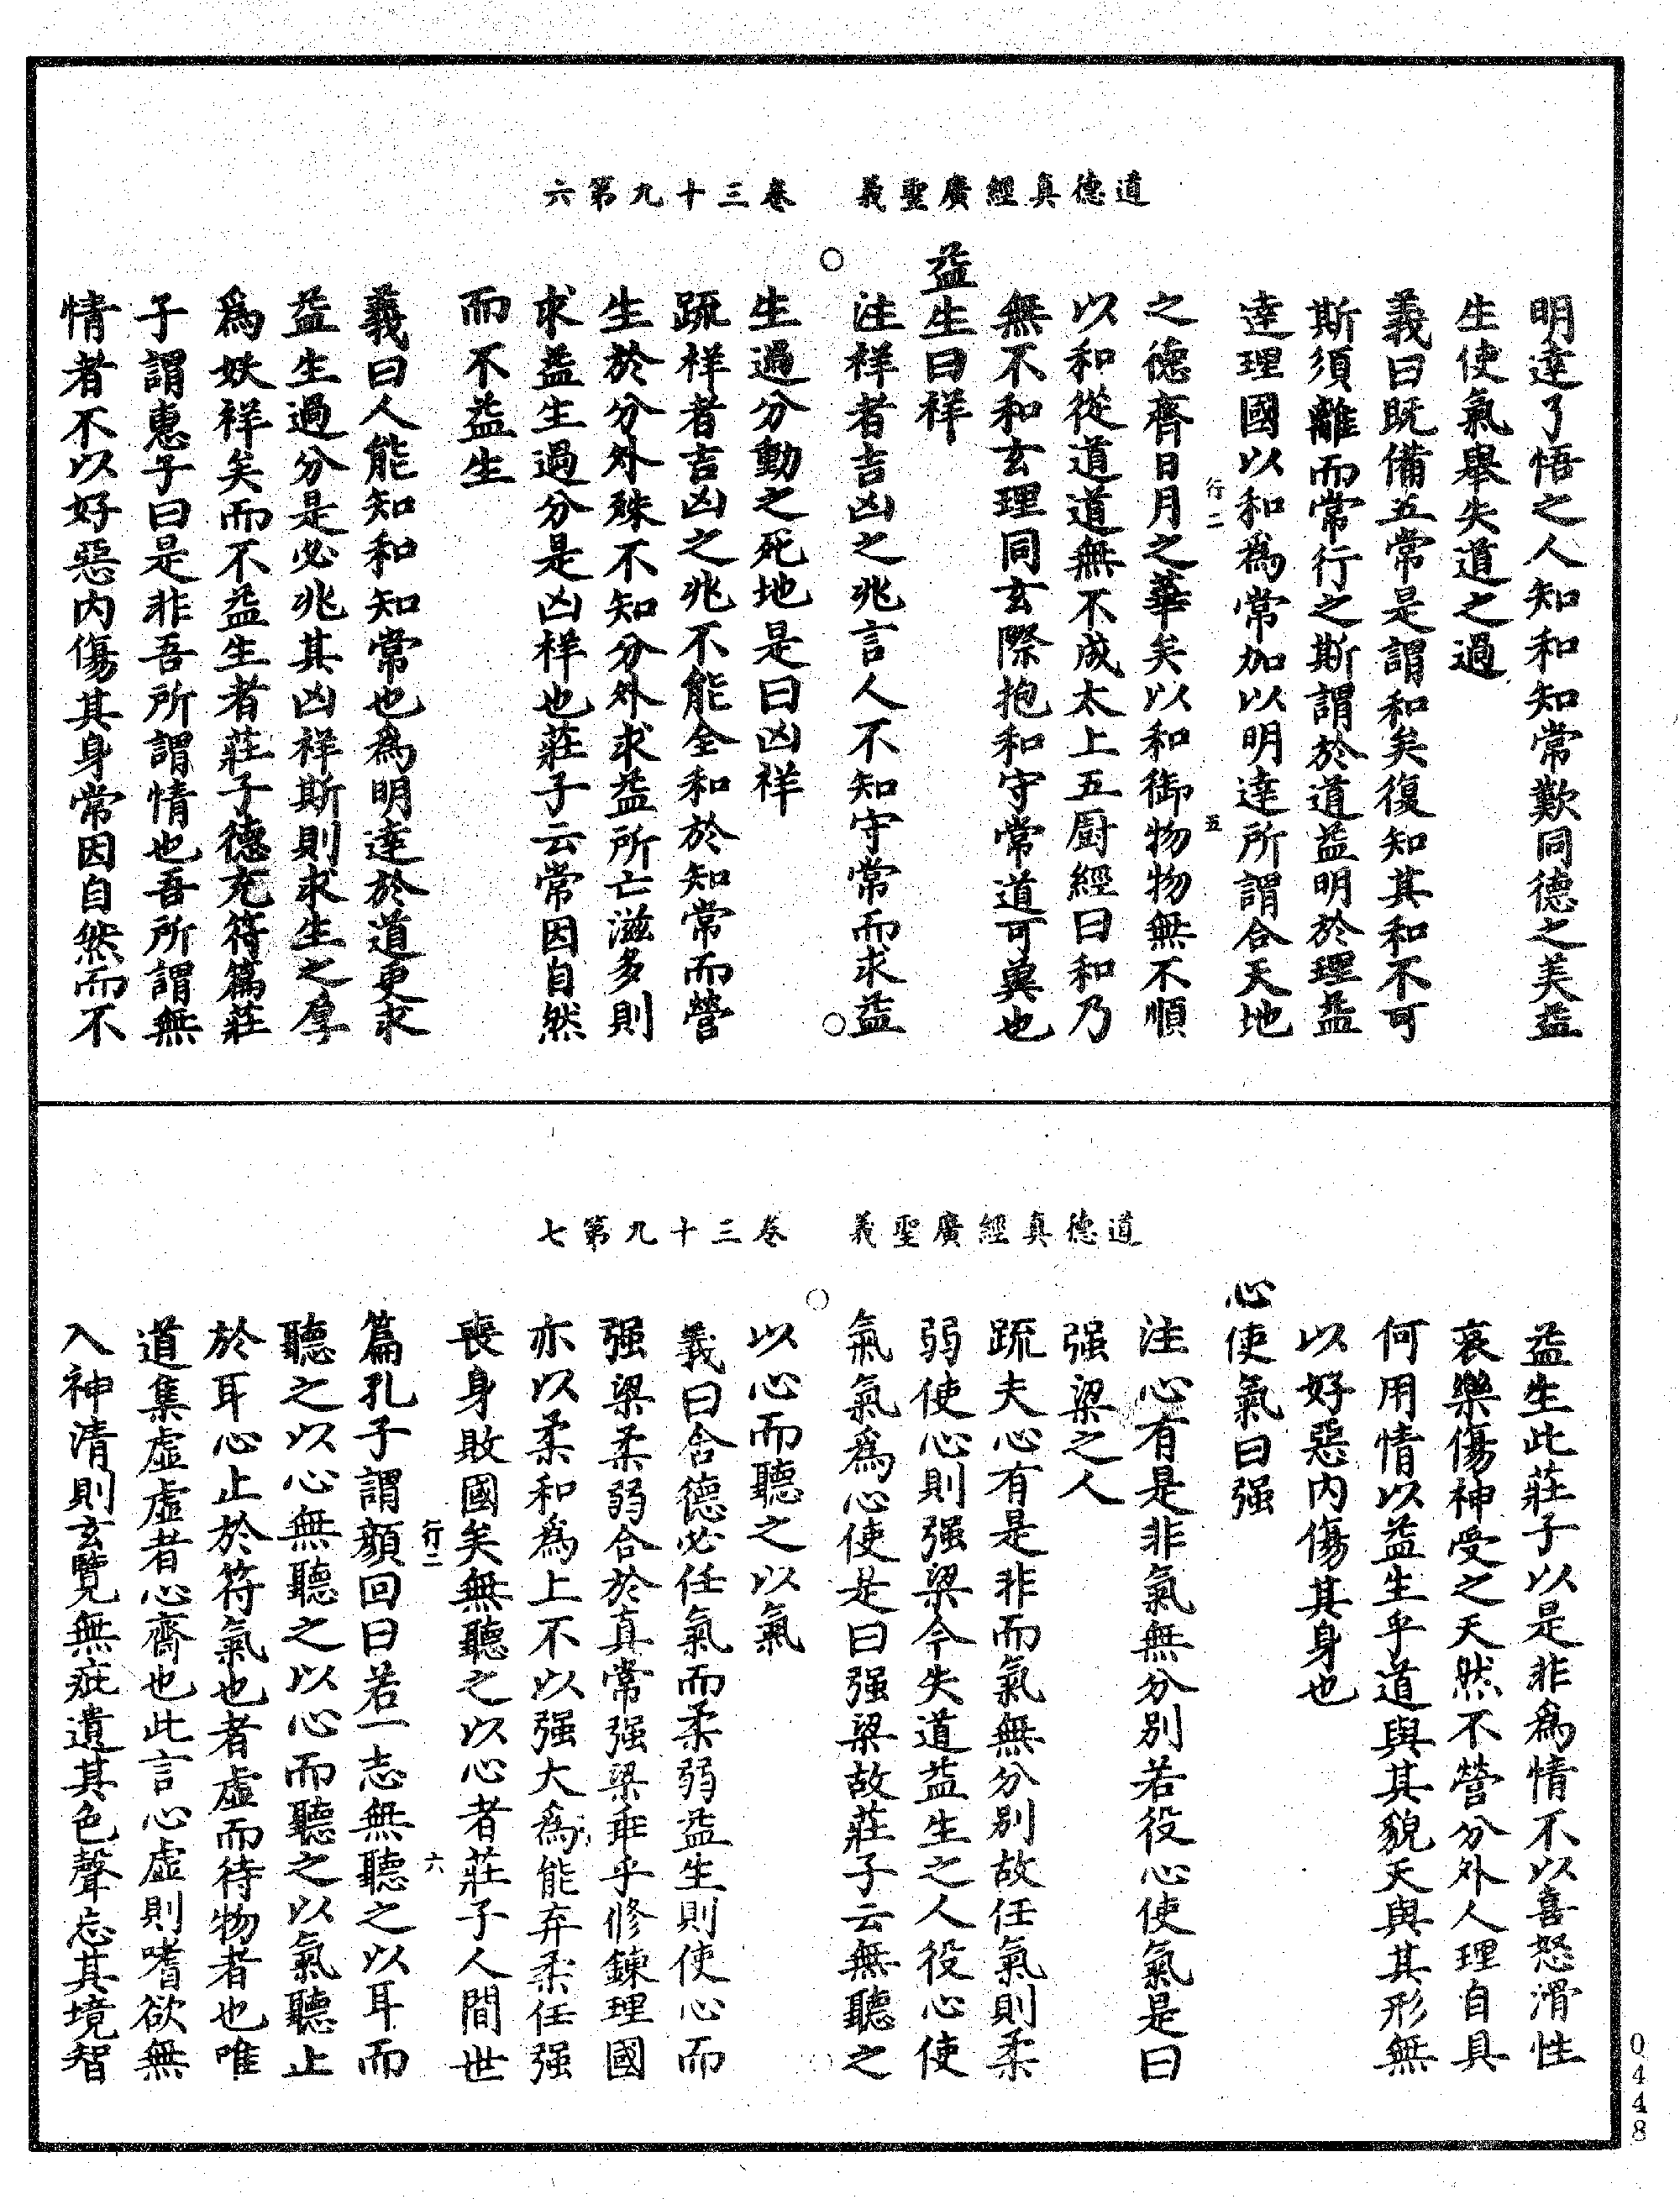 道德真經廣聖義　卷三十九第六
明達了悟之人知和知常歎同德之美益
生使氣舉失道之過
義曰既備五常是謂和矣復知其和不可
斯須離而常行之斯謂於道益明於理益
達理國以和為常加以明達所謂合天地
行二　五
之德齊日月之華矣以和御物物無不順
以和從道道無不成太上五廚經曰和乃
無不和玄理同玄際抱和守常道可冀也
益生曰祥
注祥者吉凶之兆言人不知守常而求益
生過分動之死地是曰凶祥
疏祥者吉凶之兆不能全和於知常而營
生於分外殊不知分外求益所亡滋多則
求益生過分是凶样也莊子云常因自然
而不益生
義曰人能知和知常也為明達於道更求
益生過分是必兆其凶祥斯則求生之厚
為妖祥矣而不益生者莊子德充符篇莊
子謂惠子曰是非吾所謂情也吾所謂無
情者不以好惡內傷其身常因自然而不
道德真經廣聖義　卷三十九第七
益生此莊子以是非為情不以喜怒滑性
哀樂傷神受之天然不營分外人理自具
何用情以益生乎道與其貌天與其形無
以好惡內傷其身也
心使氣曰强
注心有是非氣無分別若役心使氣是曰
强梁之人
疏夫心有是非而氣無分別故任氣則柔
弱使心則强梁今失道益生之人役心使
氣氣為心使是曰强梁故莊子云無聽之
以心而聽之以氣
義曰含德必任氣而柔弱益生則使心而
强梁柔弱合於真常强梁乖乎修鍊理國
亦以柔和為上不以强大為能弃柔任强
喪身敗國矣無聽之以心者莊子人間世
行二　六
篇孔子謂顏回曰若一志無聽之以耳而
聽之以心無聽之以心而聽之以氣聽止
於耳心止於符氣也者虛而待物者也唯
道集虛虛者心齋也此言心虛則嗜欲無
入神清則玄覽無疵遺其色聲忘其境智
0448